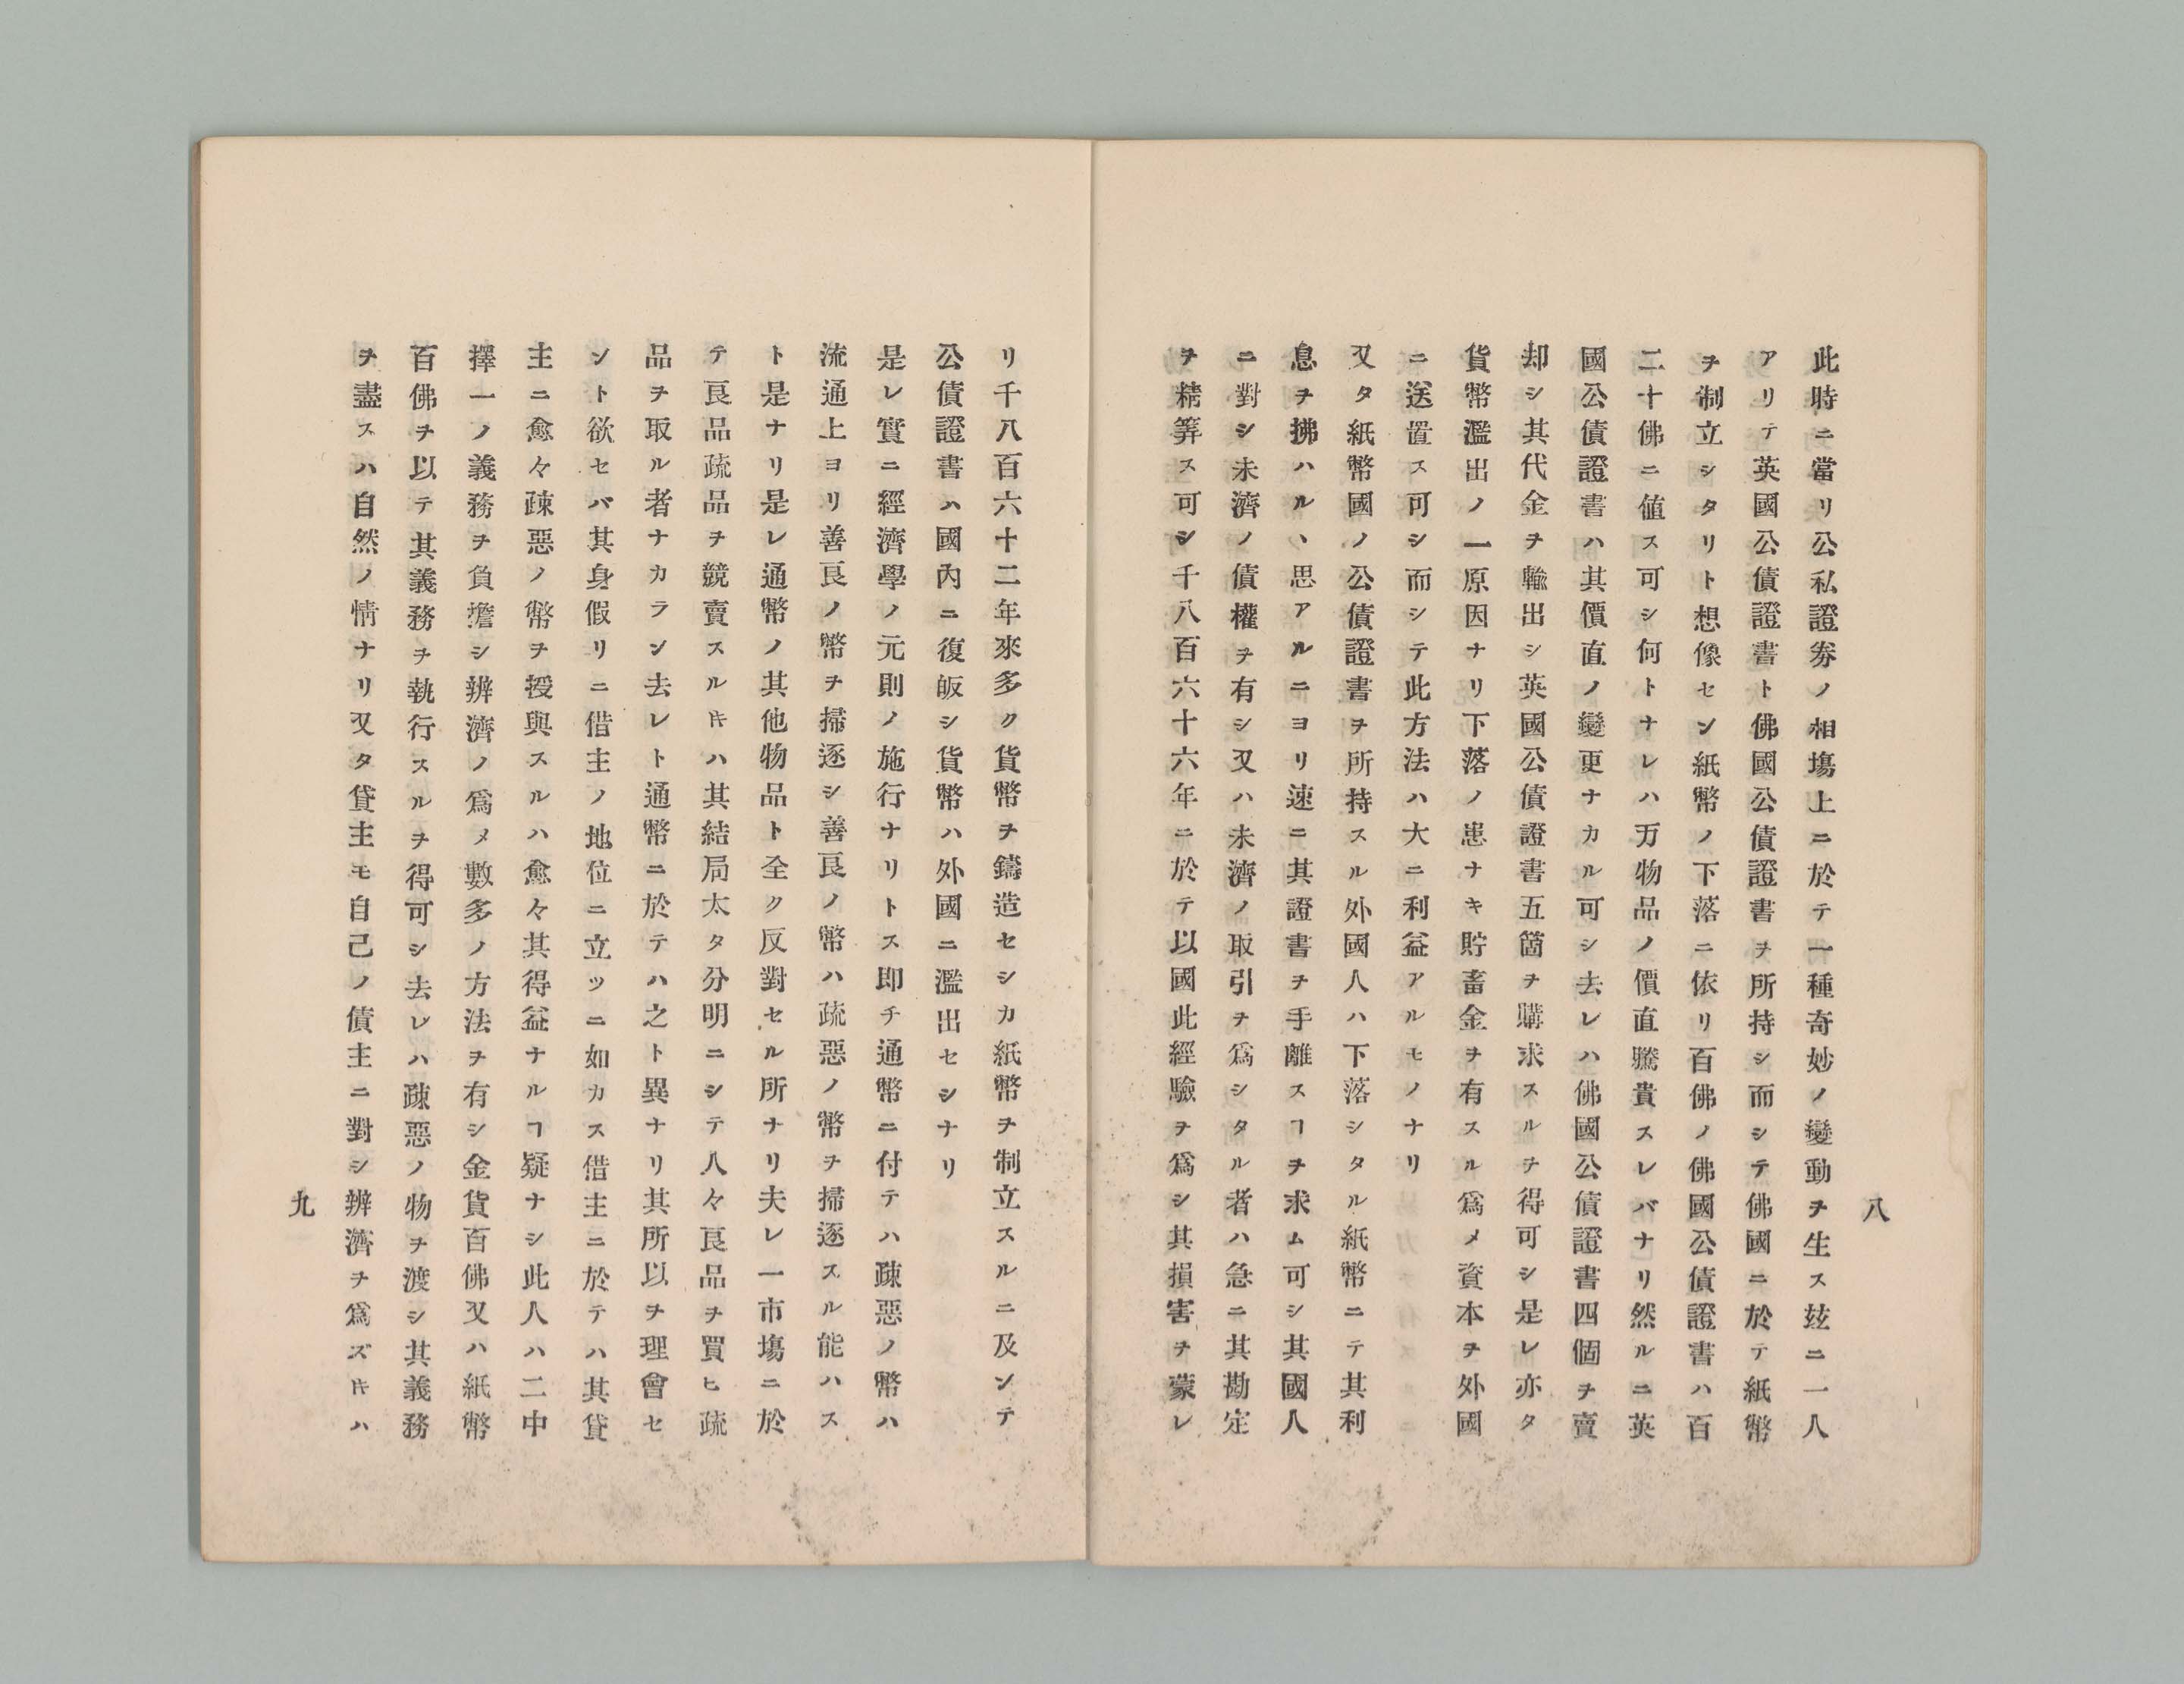 八
此時ニ當リ公私證劵ノ相塲上ニ於テ一種奇妙ノ變動ヲ生ス玆ニ一人
アリテ英國公債證書ト佛國公債證書ヲ所持シ而シテ佛國ニ於テ紙幣
ヲ制立シタリト想像セン紙幣ノ下落ニ依リ百佛ノ佛國公債證書ハ百
二十佛ニ値ス可シ何トナレハ万物品ノ價直騰貴スレバナリ然ルニ英
國公債證書ハ其價直ノ變更ナカル可シ去レハ佛國公債證書四個ヲ賣
却シ其代金ヲ輸出シ英國公債證書五箇ヲ購求スルヲ得可シ是レ亦タ
貨幣濫出ノ一原因ナリ下落ノ患ナキ貯畜金ヲ有スル爲メ資本ヲ外國
ニ送置ス可シ而シテ此方法ハ大ニ利益アルモノナリ
又タ紙幣國ノ公債證書ヲ所持スル外國人ハ下落シタル紙幣ニテ其利
息ヲ拂ハルヽ思アルニヨリ速ニ其證書ヲ手離スヿヲ求ム可シ其國人
ニ對シ未濟ノ債權ヲ有シ又ハ未濟ノ取引ヲ爲シタル者ハ急ニ其勘定
ヲ精算ス可シ千八百六十六年ニ於テ以國此經驗ヲ爲シ其損害ヲ蒙レ
リ千八百六十二年來多ク貨幣ヲ鑄造セシカ紙幣ヲ制立スルニ及ンテ
公債證書ハ國內ニ復皈シ貨幣ハ外國ニ濫出セシナリ
是レ實ニ經濟學ノ元則ノ施行ナリトス即チ通幣ニ付テハ疎惡ノ幣ハ
流通上ヨリ善良ノ幣ヲ掃逐シ善良ノ幣ハ疏惡ノ幣ヲ掃逐スル能ハス
ト是ナリ是レ通幣ノ其他物品ト全ク反對セル所ナリ夫レ一市塲ニ於
テ良品疏品ヲ競賣スルトキハ其結局太タ分明ニシテ人々良品ヲ買ヒ疏
品ヲ取ル者ナカラン去レト通幣ニ於テハ之ト異ナリ其所以ヲ理會セ
ント欲セバ其身假リニ借主ノ地位ニ立ツニ如カス借主ニ於テハ其貸
主ニ愈々疎惡ノ幣ヲ授與スルハ愈々其得益ナルヿ疑ナシ此人ハ二中
擇一ノ義務ヲ負擔シ辨濟ノ爲メ數多ノ方法ヲ有シ金貨百佛又ハ紙幣
百佛ヲ以テ其義務ヲ執行スルヲ得可シ去レハ疎惡ノ物ヲ渡シ其義務
ヲ盡スハ自然ノ情ナリ又タ貸主モ自己ノ債主ニ對シ辨濟ヲ爲ズトキハ
九